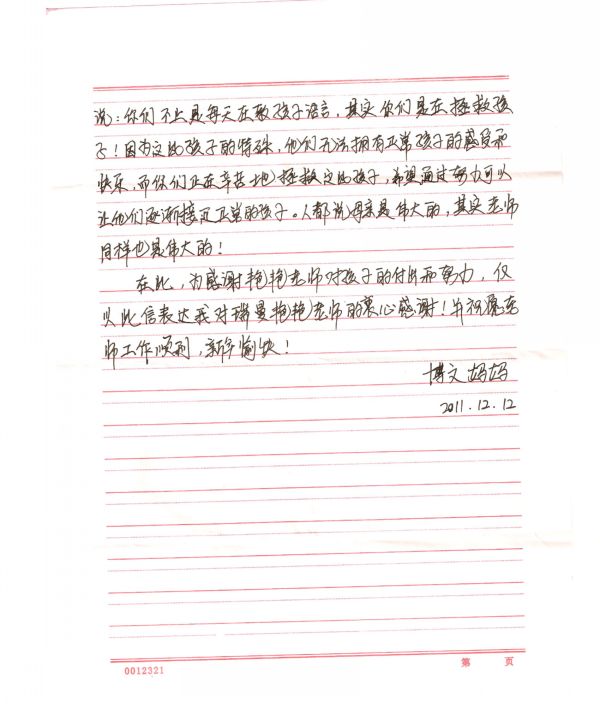 说：你们不止是每天在教孩子语言，其实你们是在拯救孩
子！因为这些孩子的特殊，他们无法拥有正常孩子的感受和
快乐，而你们正在辛苦地拯救这些孩子，希望通过努力可以
让他们逐渐接近正常的孩子。人都说母亲是伟大的，其实老师
同样也是伟大的！
在此，为感谢艳艳老师对孩子的付出和努力，仅
以此信表达我对瑞曼艳艳老师的衷心感谢！并祝愿老
师工作顺利，新年愉快！
博文妈妈
2011.12.12
0012321 第 页